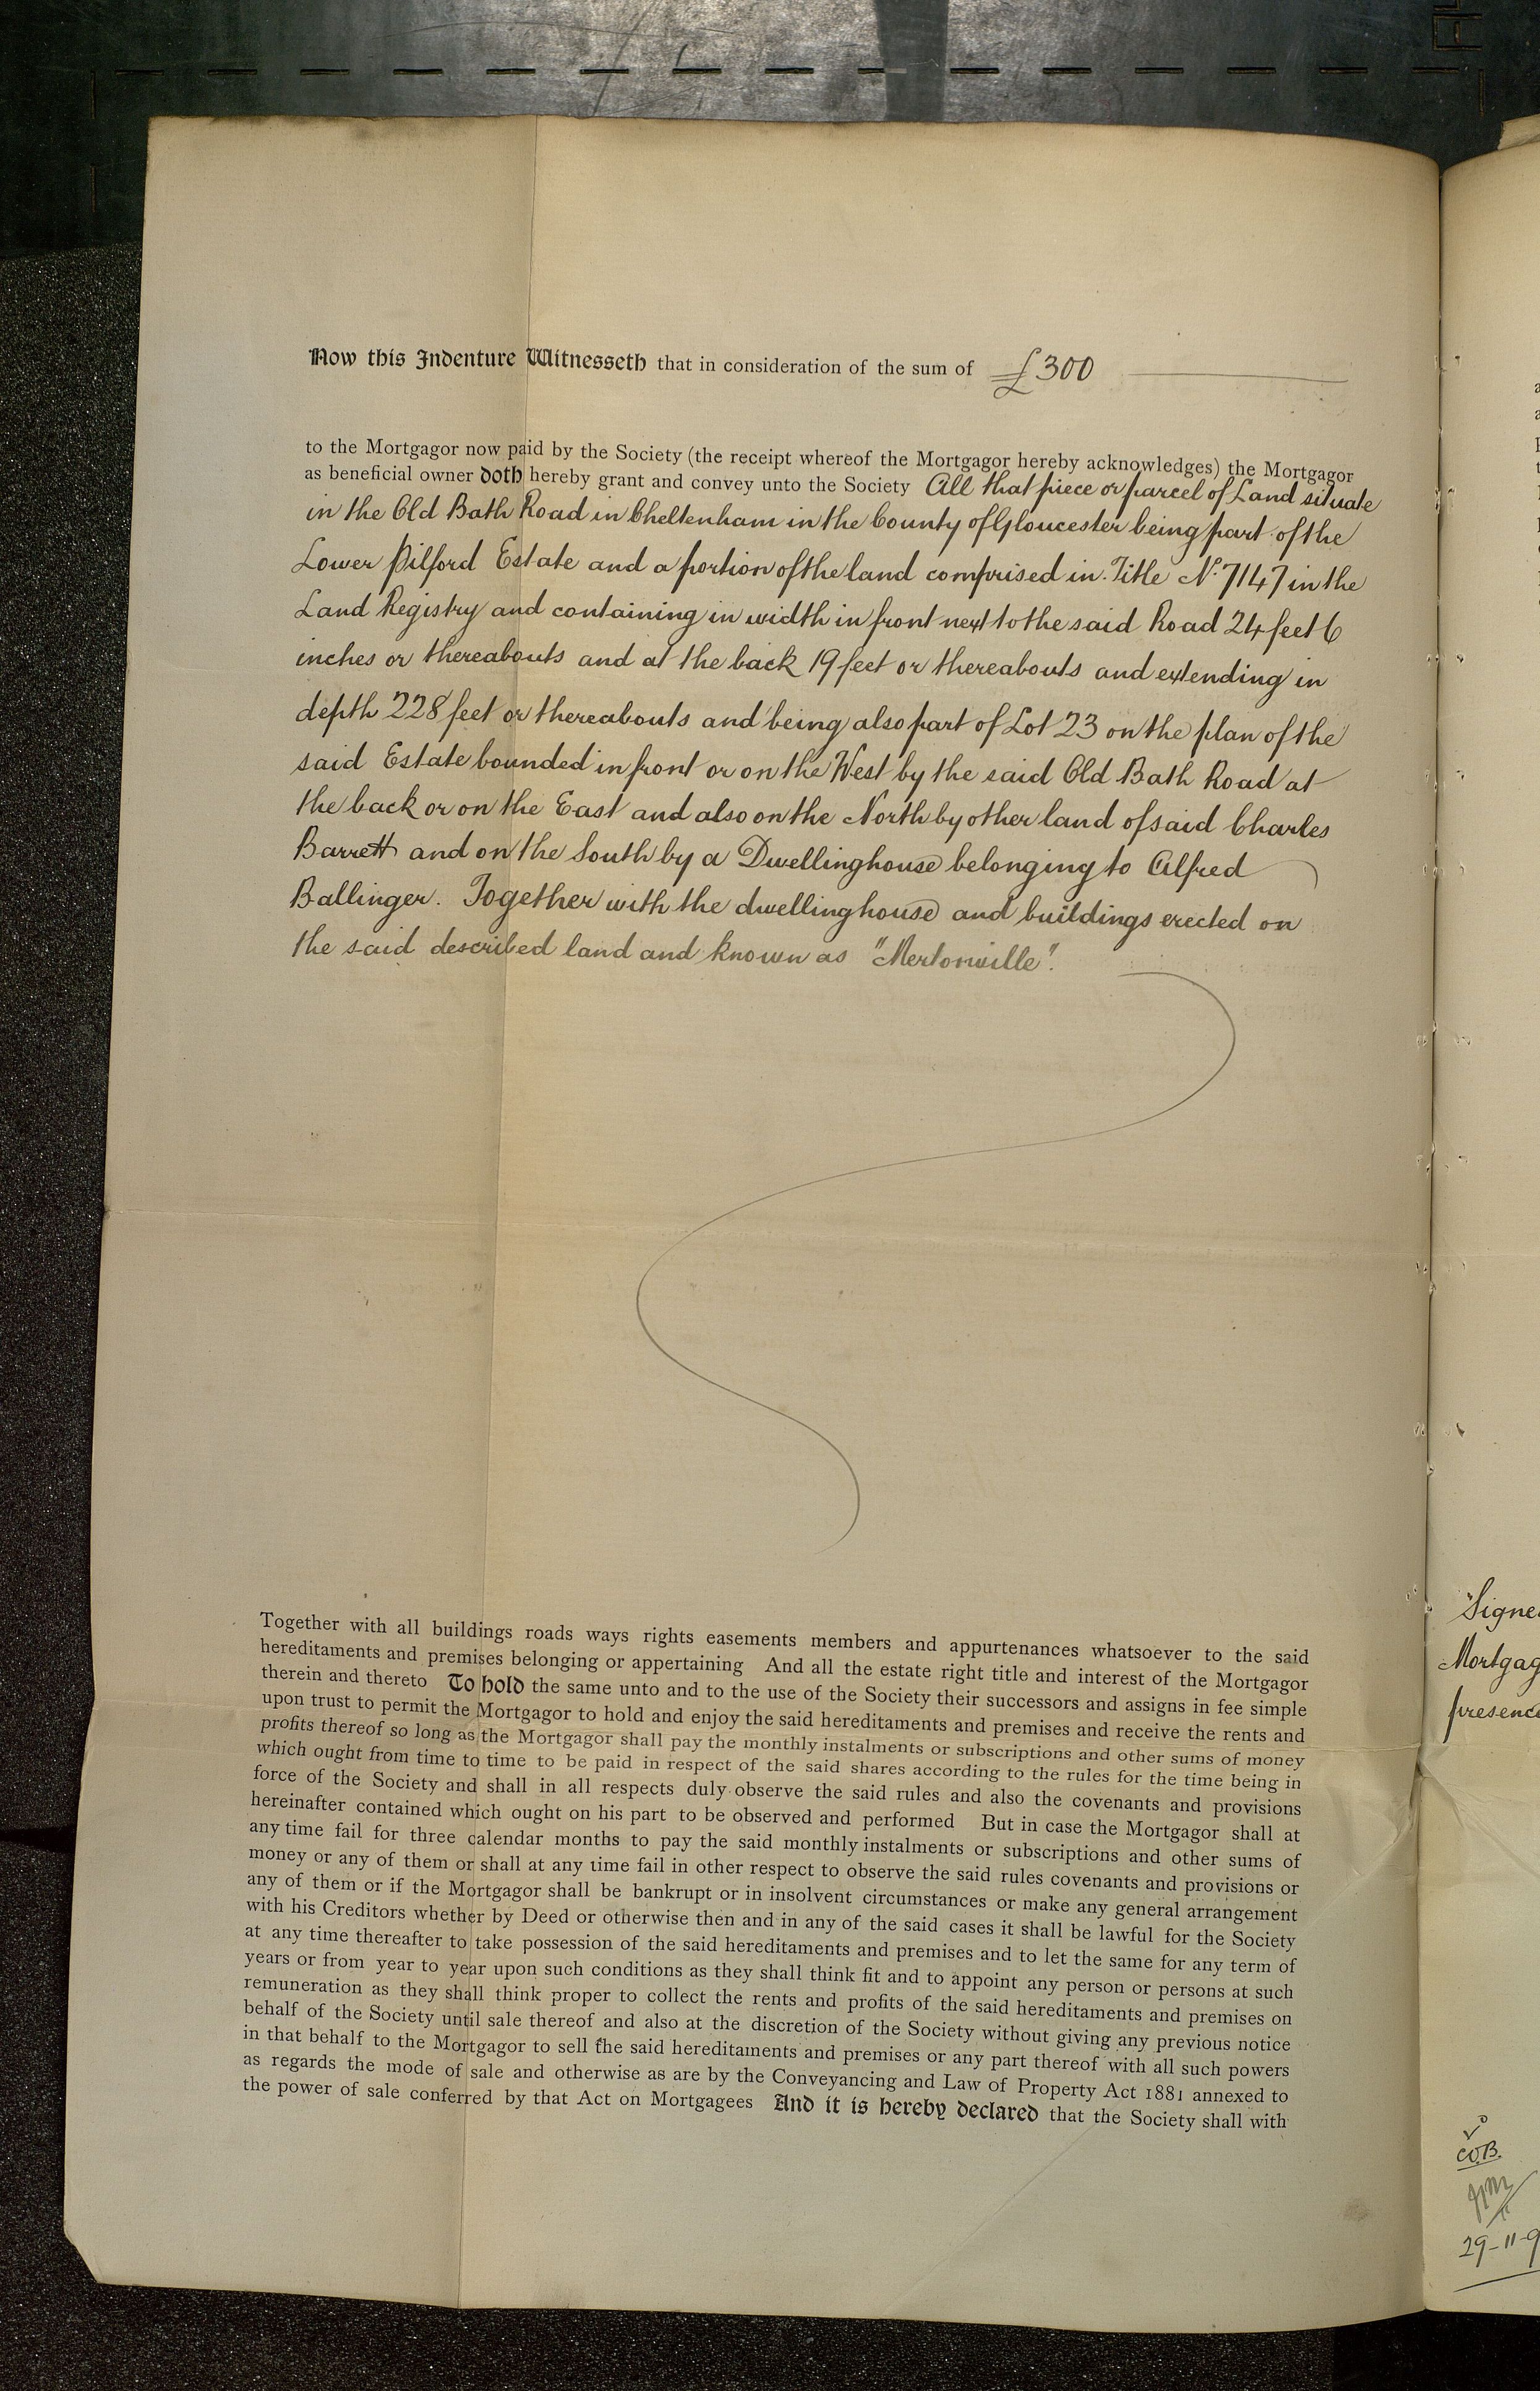 Now this Indenture Witnesseth that in consideration of the sum of £300
to the Mortgagor now paid by the Society (the receipt whereof the Mortgagor hereby acknowledges) the Mortgagor
as beneficial owner doth hereby grant and convey unto the Society All that piece or parcel of Land situate
in the Old Bath Road in Cheltenham in the County of Gloucester being part of the
Lower Pilford Estate and a portion of the land comprised in Title No. 7147 in the
Land Registry and containing in width in front next to the said Road 24 feet 6
inches or thereabouts and at the back 19 feet or thereabouts and extending in
depth 228 feet or thereabouts and being also part of Lot 23 on the plan of the
said Estate bounded in front or on the West by the said Old Bath Road at
the back or on the East and also on the North by other land of said Charles
Barrett and on the South by a Dwellinghouse belonging to Alfred
Ballinger. Together with the dwellinghouse and buildings erected on
the said described land and known as "Mertonville".
Together with all buildings roads ways rights easements members and appurtenances whatsoever to the said
hereditaments and premises belonging or appertaining And all the estate right title and interest of the Mortgagor
therein and thereto To hold the same unto and to the use of the Society their successors and assigns in fee simple
upon trust to permit the Mortgagor to hold and enjoy the said hereditaments and premises and receive the rents and
profits thereof so long as the Mortgagor shall pay the monthly instalments or subscriptions and other sums of money
which ought from time to time to be paid in respect of the said shares according to the rules for the time being in
force of the Society and shall in all respects duly observe the said rules and also the covenants and provisions
hereinafter contained which ought on his part to be observed and performed But in case the Mortgagor shall at
any time fail for three calendar months to pay the said monthly instalments or subscriptions and other sums of
money or any of them or shall at any time fail in other respect to observe the said rules covenants and provisions or
any of them or if the Mortgagor shall be bankrupt or in insolvent circumstances or make any general arrangement
with his Creditors whether by Deed or otherwise then and in any of the said cases it shall be lawful for the Society
at any time thereafter to take possession of the said hereditaments and premises and to let the same for any term of
years or from year to year upon such conditions as they shall think fit and to appoint any person or persons at such
remuneration as they shall think proper to collect the rents and profits of the said hereditaments and premises on
behalf of the Society until sale thereof and also at the discretion of the Society without giving any previous notice
in that behalf to the Mortgagor to sell the said hereditaments and premises or any part thereof with all such powers
as regards the mode of sale and otherwise as are by the Conveyancing and Law of Property Act 1881 annexed to
the power of sale conferred by that Act on Mortgagees And it is hereby declared that the Society shall with
Signe
Mortgag
presence
C.O.B.
29-11-9